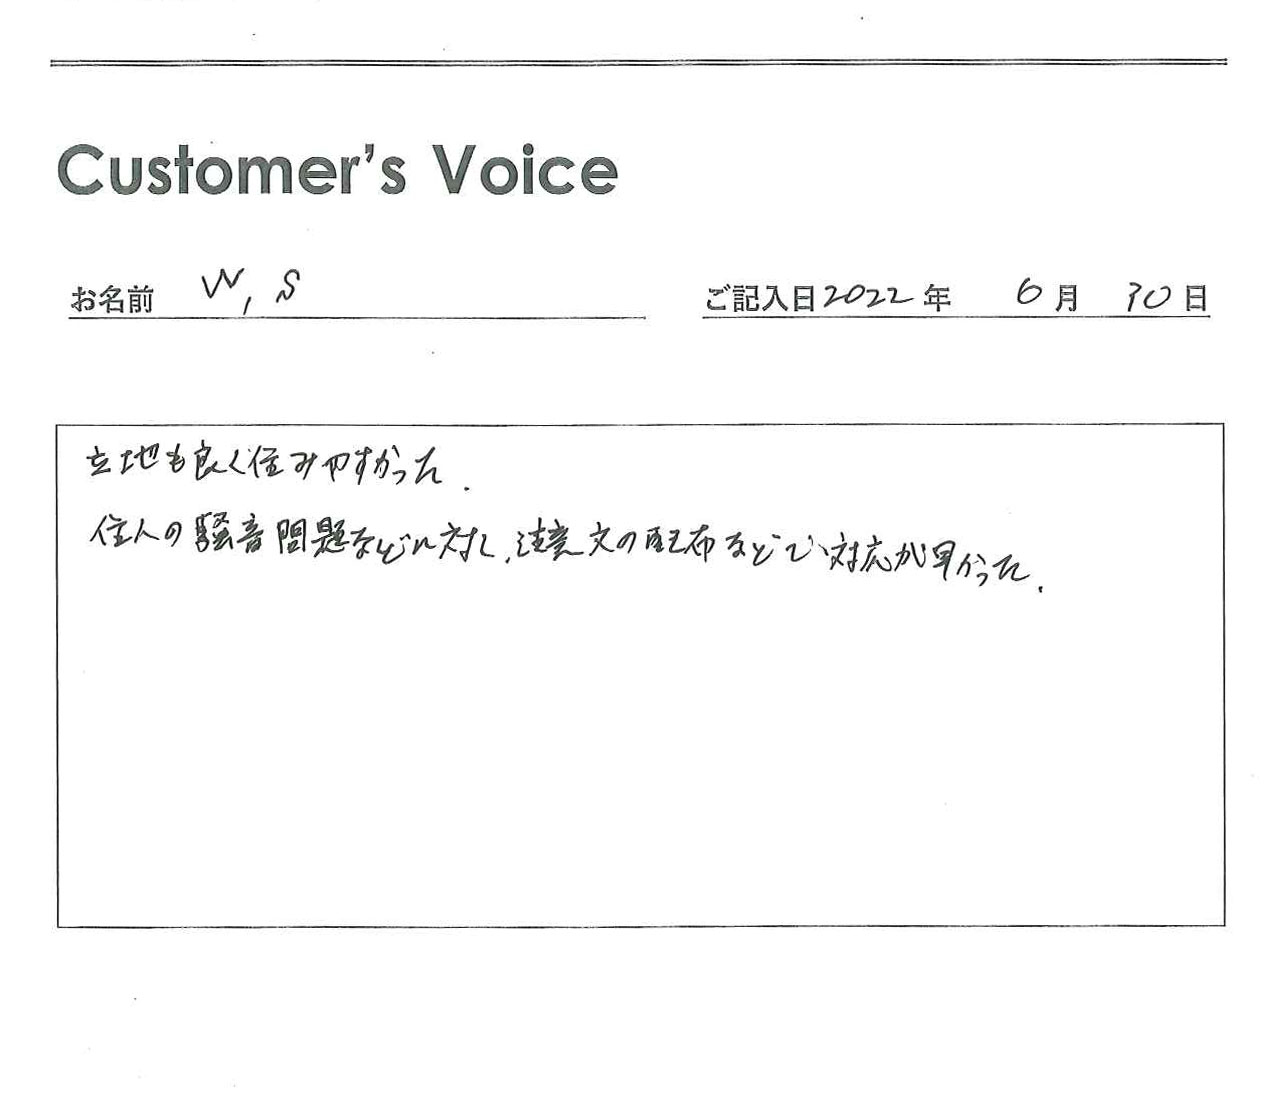 Customer's Voice
お名前 W, S
ご記入日2022年 6月 30日
立地も良く住みやすかった.
住人の騒音問題などに対し,注意文の配布などで対応が早かった.